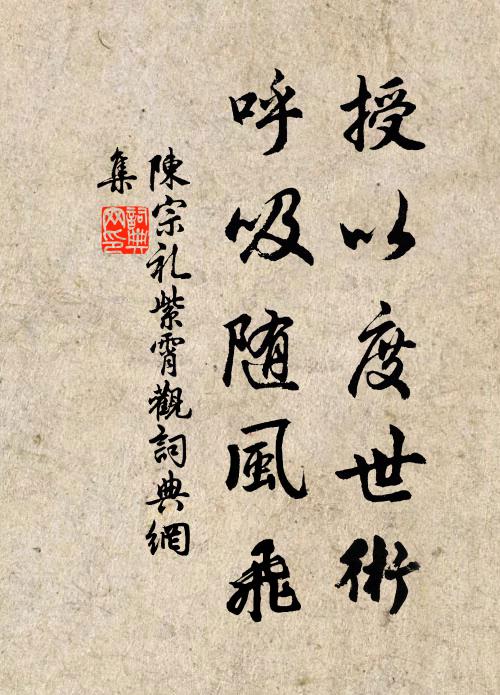 授以度世術
呼吸随風飛
陳宗礼紫霄觀詞典網
集
詞典网印